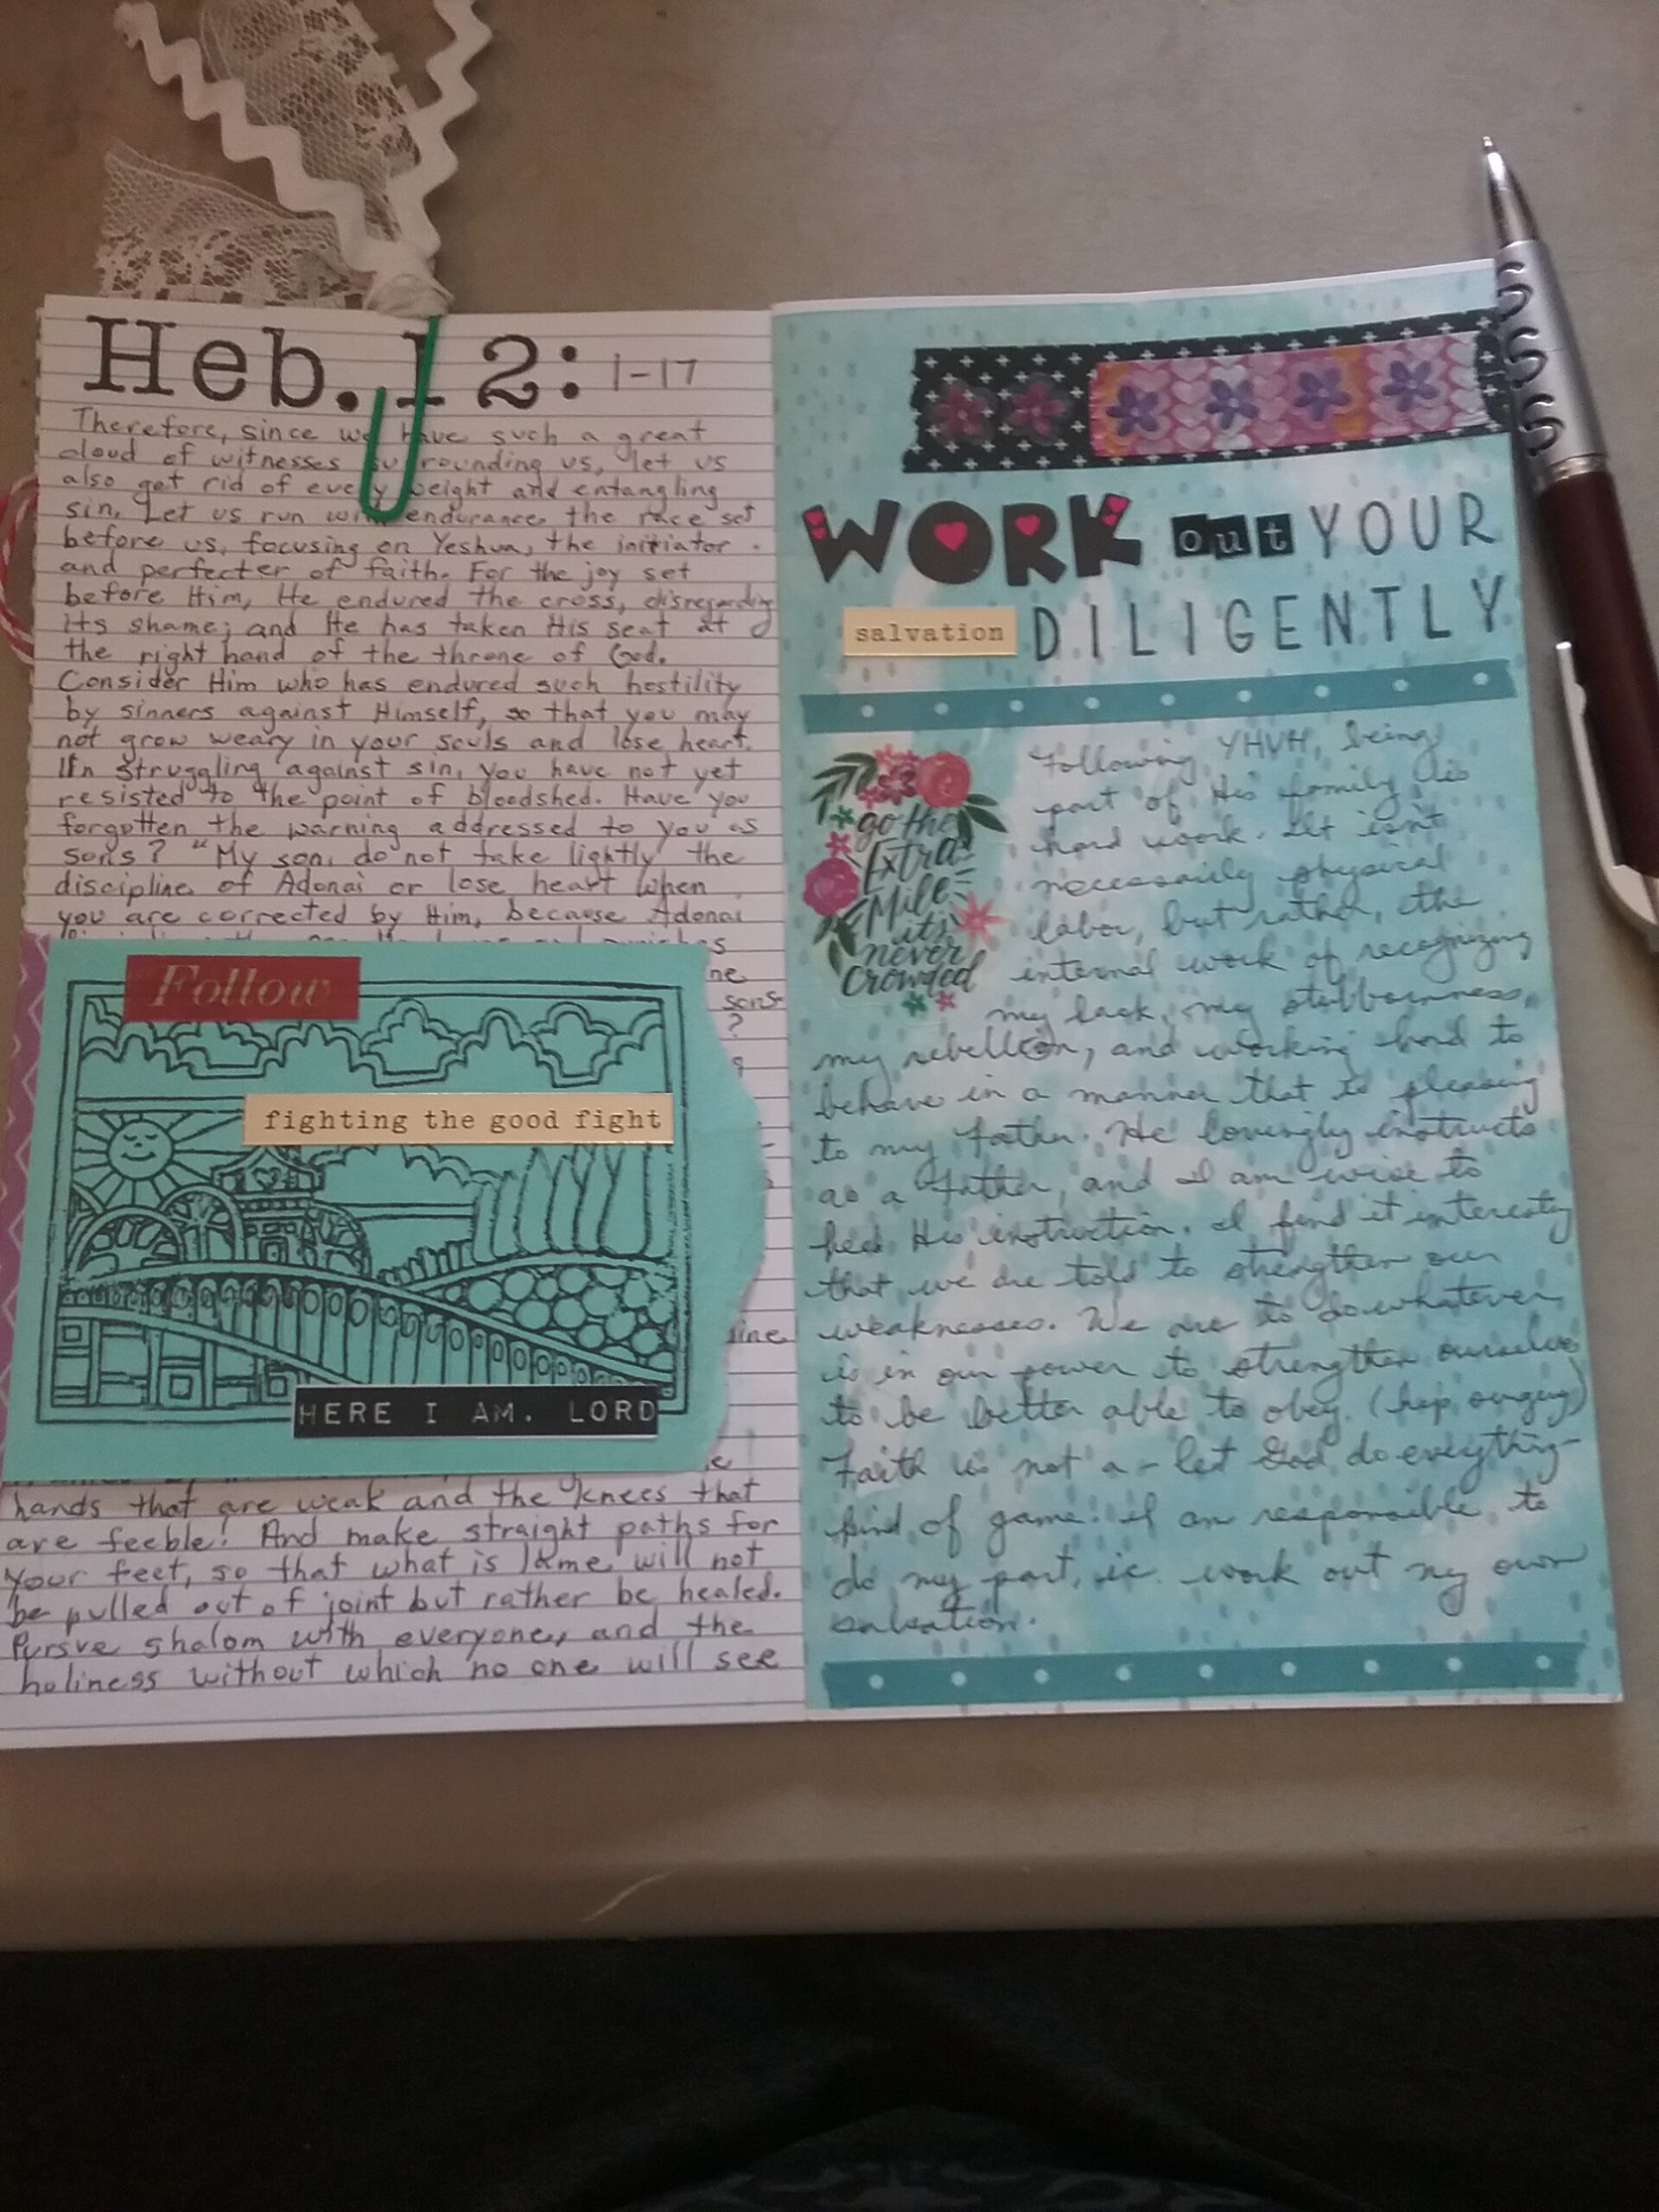 Heb. 12: 1-17
Therefore, since we have such a great
cloud of witnesses surrounding us, let us
also get rid of every weight and entangling
sin. Let us run with endurance the race set
before us, focusing on Yeshua, the initiator
and perfecter of faith. For the joy set
before Him, He endured the cross, disregarding
its shame; and He has taken His seat at
the right hand of the throne of God.
Consider Him who has endured such hostility
by sinners against Himself, so that you may
not grow weary in your souls and lose heart.
In struggling against sin, you have not yet
resisted to the point of bloodshed. Have you
forgotten the warning addressed to you as
sons? "My son, do not take lightly the
discipline of Adonai or lose heart when
you are corrected by Him, because Adonai
sons
?
Follow
fighting the good fight
HERE I AM, LORD
hands that are weak and the knees that
are feeble! And make straight paths for
your feet, so that what is lame will not
be pulled out of joint but rather be healed.
Pursue shalom with everyone, and the
holiness without which no one will see
WORK out YOUR
salvation DILIGENTLY
go the
Extra
Mile
it's
never
crowded
Following YHVH, being
part of His family is
hard work. It isn't
necessarily physical
labor, but rather, the
internal work of recognizing
my lack, my stubbornness,
my rebellion, and working hard to
behave in a manner that is pleasing
to my Father. He lovingly instructs
as a Father, and I am wise to
heed His instruction. I find it interesting
that we are told to strengthen our
weaknesses. We are to do whatever
is in our power to strengthen ourselves
to be better able to obey.
Faith is not a - let God do everything -
kind of game. I am responsible to
do my part, ie. work out my own
salvation.